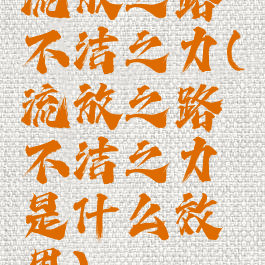 流放之路
不洁之力(
流放之路
不洁之力
是什么效
果)